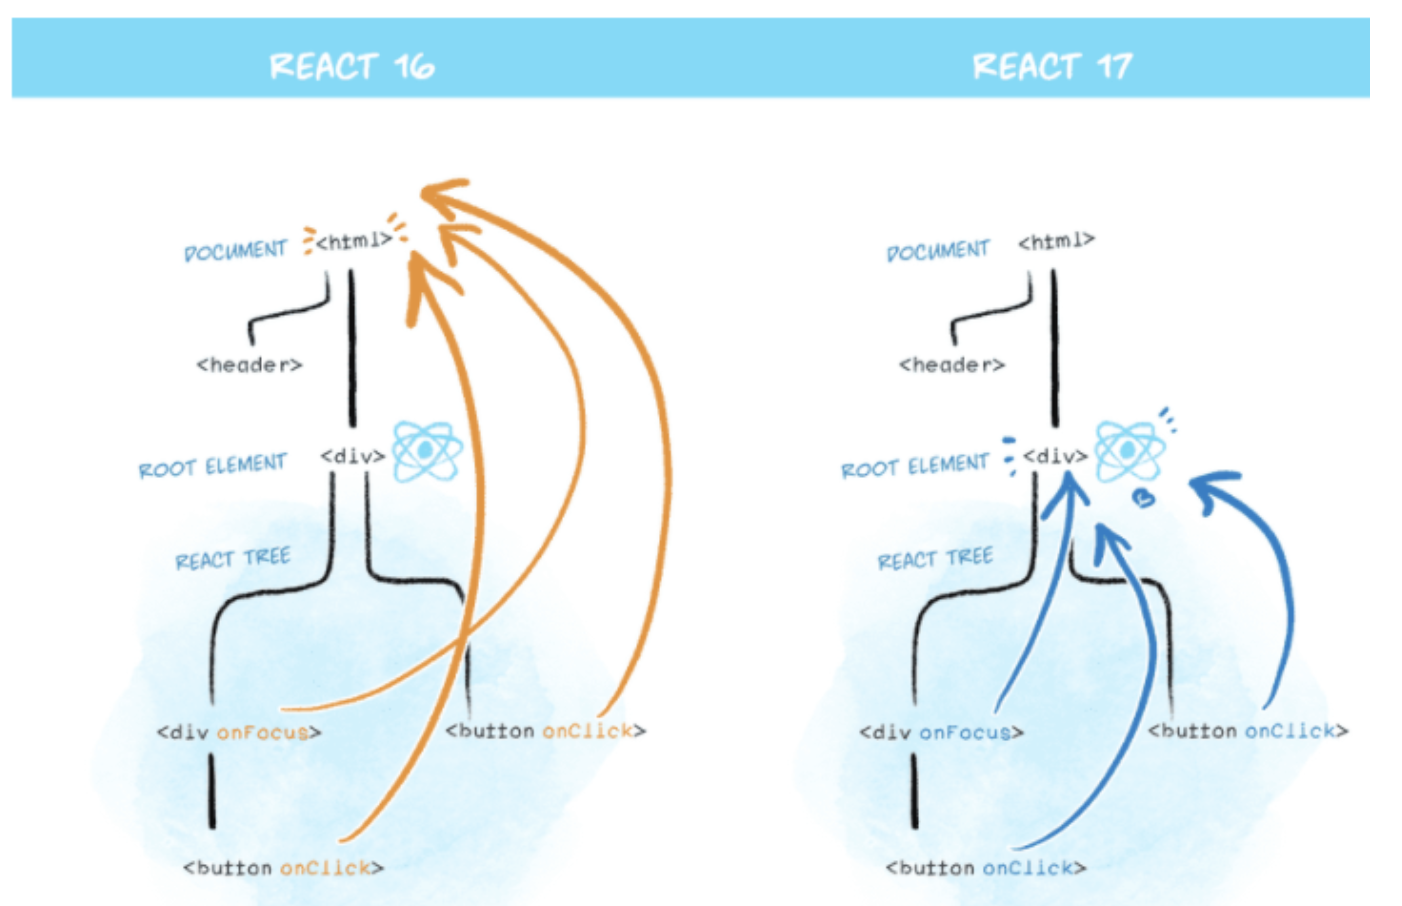 REACT 16
DOCUMENT <html>
<header>
ROOT ELEMENT <div>
REACT TREE
<div onFocus>
<button onClick>
<button onClick>
REACT 17
DOCUMENT <html>
<header>
ROOT ELEMENT <div>
REACT TREE
<div onFocus>
<button onClick>
<button onClick>